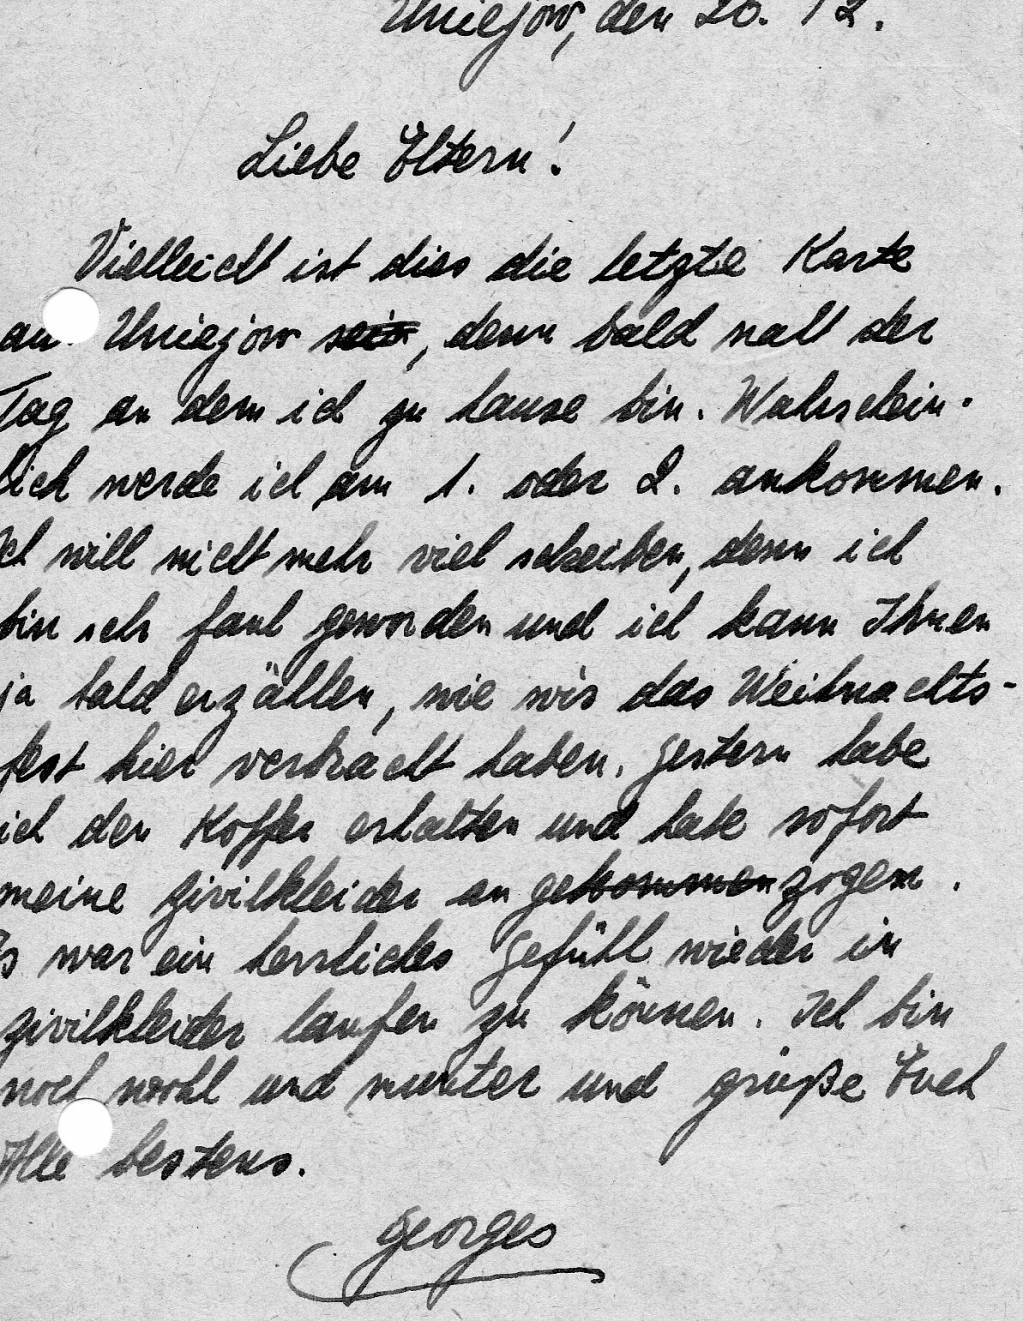 Uniejow, den 26. 12.
Liebe Eltern!
Vielleicht ist dies die letzte Karte
aus Uniejow sein, denn bald naht der
Tag an dem ich zu hause bin. Wahrschein-
lich werde ich am 1. oder 2. ankommen.
Ich will nicht mehr viel schreiben, denn ich
bin sehr faul geworden und ich kann Ihnen
ja bald erzählen, wie wir das Weihnachts-
fest hier verbracht haben. Gestern habe
ich den Koffer erhalten und habe sofort
meine Zivilkleider an gekommen zogen.
Es war ein herrliches Gefühl wieder in
Zivilkleider laufen zu können. Ich bin
noch wohl und munter und grüße Euch
Alle bestens.
Georges